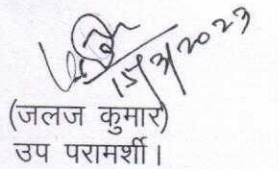 15/3/2023
(जलज कुमार)
उप परामर्शी।